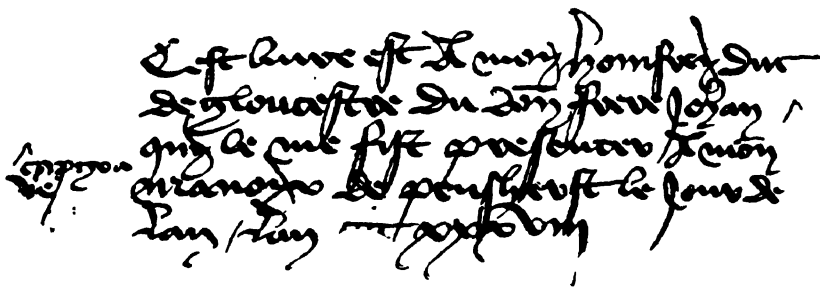 Cest livre est A moy homfrey duc
de gloucestre du don frere Johan
quy le me fist presenter A mon
manoyr de pensherst le Jour de
lan lan xxxviii